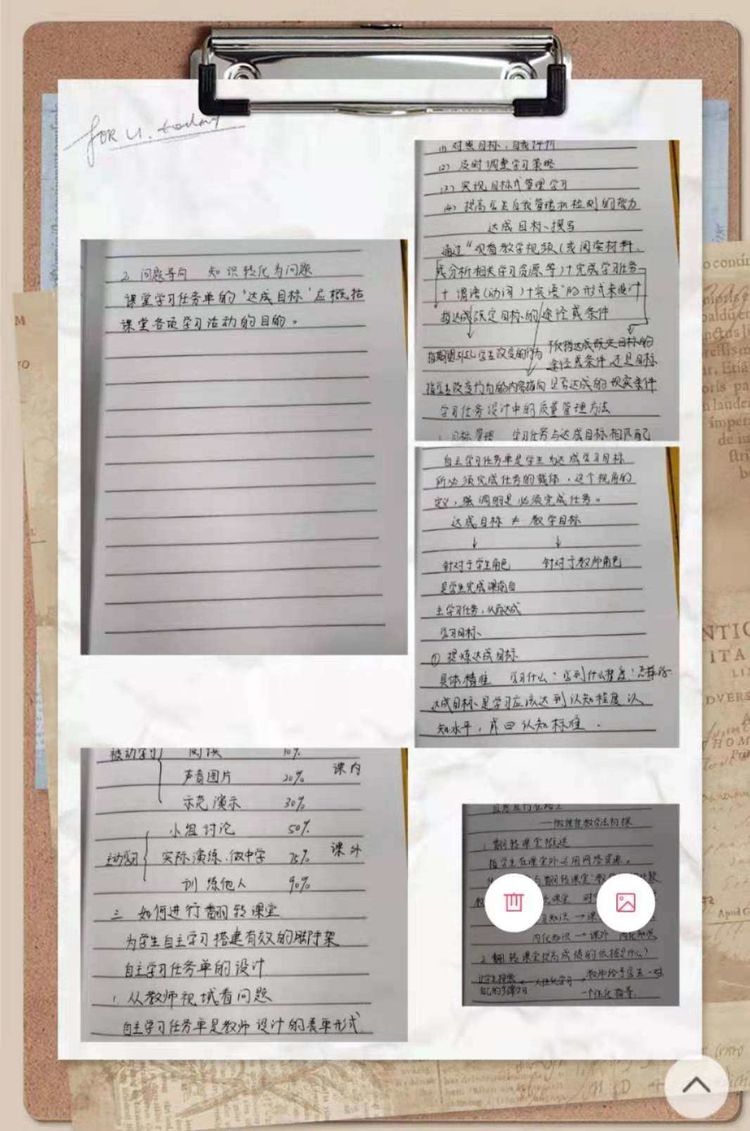 FOR U. today
2. 问题导向 知识转化为问题
课堂学习任务单的“达成目标”应概括
课堂各项学习活动的目的。
(1) 对照目标,自我评价
(2) 及时调整学习策略
(3) 实现目标式管理学习
(4) 提高学生自我管理和检测的能力
达成目标、撰写
通过“观看教学视频(或阅读材料、
或分析相关学习资源等)+完成学习任务
+谓语(动词)+宾语”的形式来设计
将达成既定目标的途径或条件
途径或条件 还是目标
指学生改变行为的内容指向 是否达成的现实条件
学习任务设计中的质量管理方法
1. 目标管理 学习任务与达成目标相匹配
自主学习任务单是学生为达成学习目标
所必须完成任务的载体,这个视角的
定义,强调的是必须完成任务。
达成目标 ≠ 教学目标
↓ ↓
针对于学生角色 针对于教师角色
是学生完成课前自
主学习任务,从而达成
学习目标
① 提炼达成目标
具体精准 学习什么?学到什么程度?怎样学
达成目标是学习应该达到认知程度认
知水平,
认知标准.
被动学习 阅读 10%
声音图片 20% 课内
示范演示 30%
小组讨论 50%
主动学习 实际演练、做中学 75% 课外
训练他人 90%
三 如何进行翻转课堂
为学生自主学习搭建有效的脚手架
自主学习任务单的设计
1. 从教师视域看问题
自主学习任务单是教师设计的表单形式
1. 翻转课堂概述
指学生在课堂外运用网络资源,
翻转课堂
知识 → 课
内化知识 → 课外 内化知识
2. 翻转课堂提高成绩的依据是什么?
自己的步骤学习 个性化指导.